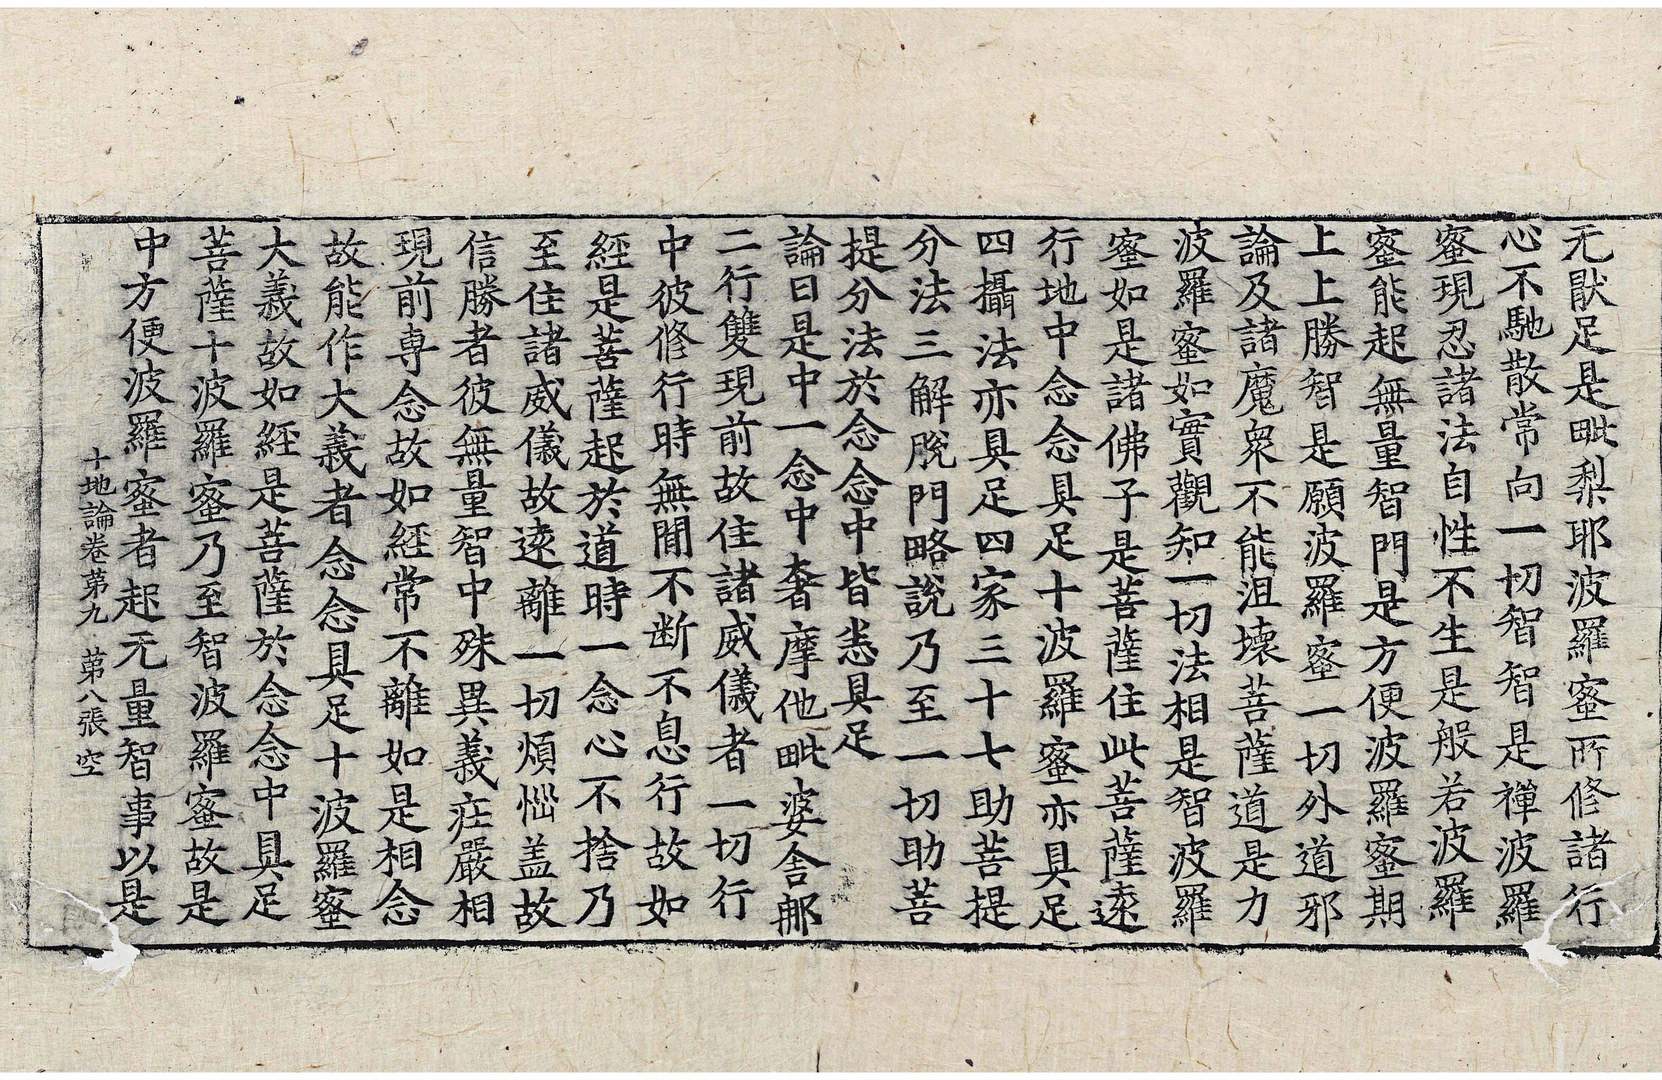 无猒足是毗梨耶波羅蜜所修諸行
心不馳散常向一切智智是禪波羅
蜜現忍諸法自性不生是般若波羅
蜜能起無量智門是方便波羅蜜期
上上勝智是願波羅蜜一切外道邪
論及諸魔衆不能沮壞菩薩道是力
波羅蜜如實觀知一切法相是智波羅
蜜如是諸佛子是菩薩住此菩薩遠
行地中念念具足十波羅蜜亦具足
四攝法亦具足四家三十七助菩提
分法三解脫門略說乃至一切助菩
提分法於念念中皆悉具足
論曰是中一念中奢摩他毗婆舍那
二行雙現前故住諸威儀者一切行
中彼修行時無間不断不息行故如
經是菩薩起於道時一念心不捨乃
至住諸威儀故遠離一切煩惱盖故
信勝者彼無量智中殊異義庄嚴相
現前専念故如經常不離如是相念
故能作大義者念念具足十波羅蜜
大義故如經是菩薩於念念中具足
菩薩十波羅蜜乃至智波羅蜜故是
中方便波羅蜜者起无量智事以是
十地論卷苐九 苐八張 空